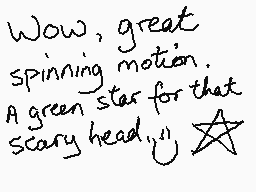 Wow, great
spinning motion.
A green star for that
scary head.